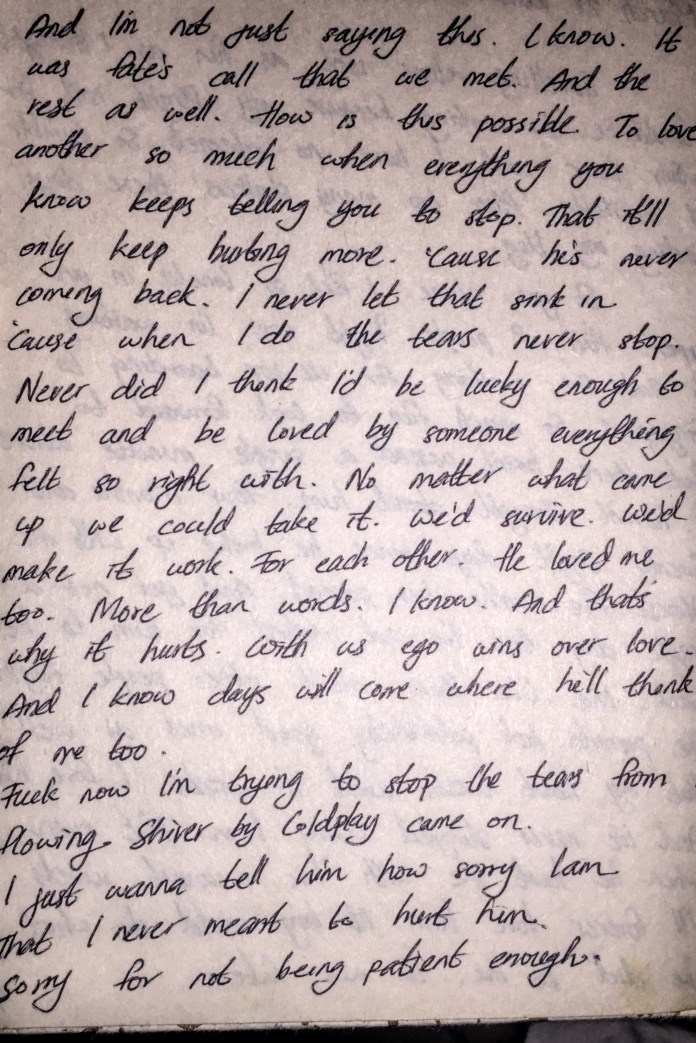 And I'm not just saying this. I know. It
was fate's call that we met. And the
rest as well. How is this possible. To love
another so much when everything you
know keeps telling you to stop. That it'll
only keep hurting more. 'Cause he's never
coming back. I never let that sink in
'cause when I do the tears never stop.
Never did I think I'd be lucky enough to
meet and be loved by someone everything
felt so right with. No matter what came
up we could take it. We'd survive. We'd
make it work. For each other. He loved me
too. More than words. I know. And that's
why it hurts. With us ego wins over love.
And I know days will come where he'll think
of me too.
Fuck now I'm trying to stop the tears from
flowing. Shiver by Coldplay came on.
I just wanna tell him how sorry I am
That I never meant to hurt him.
Sorry for not being patient enough.